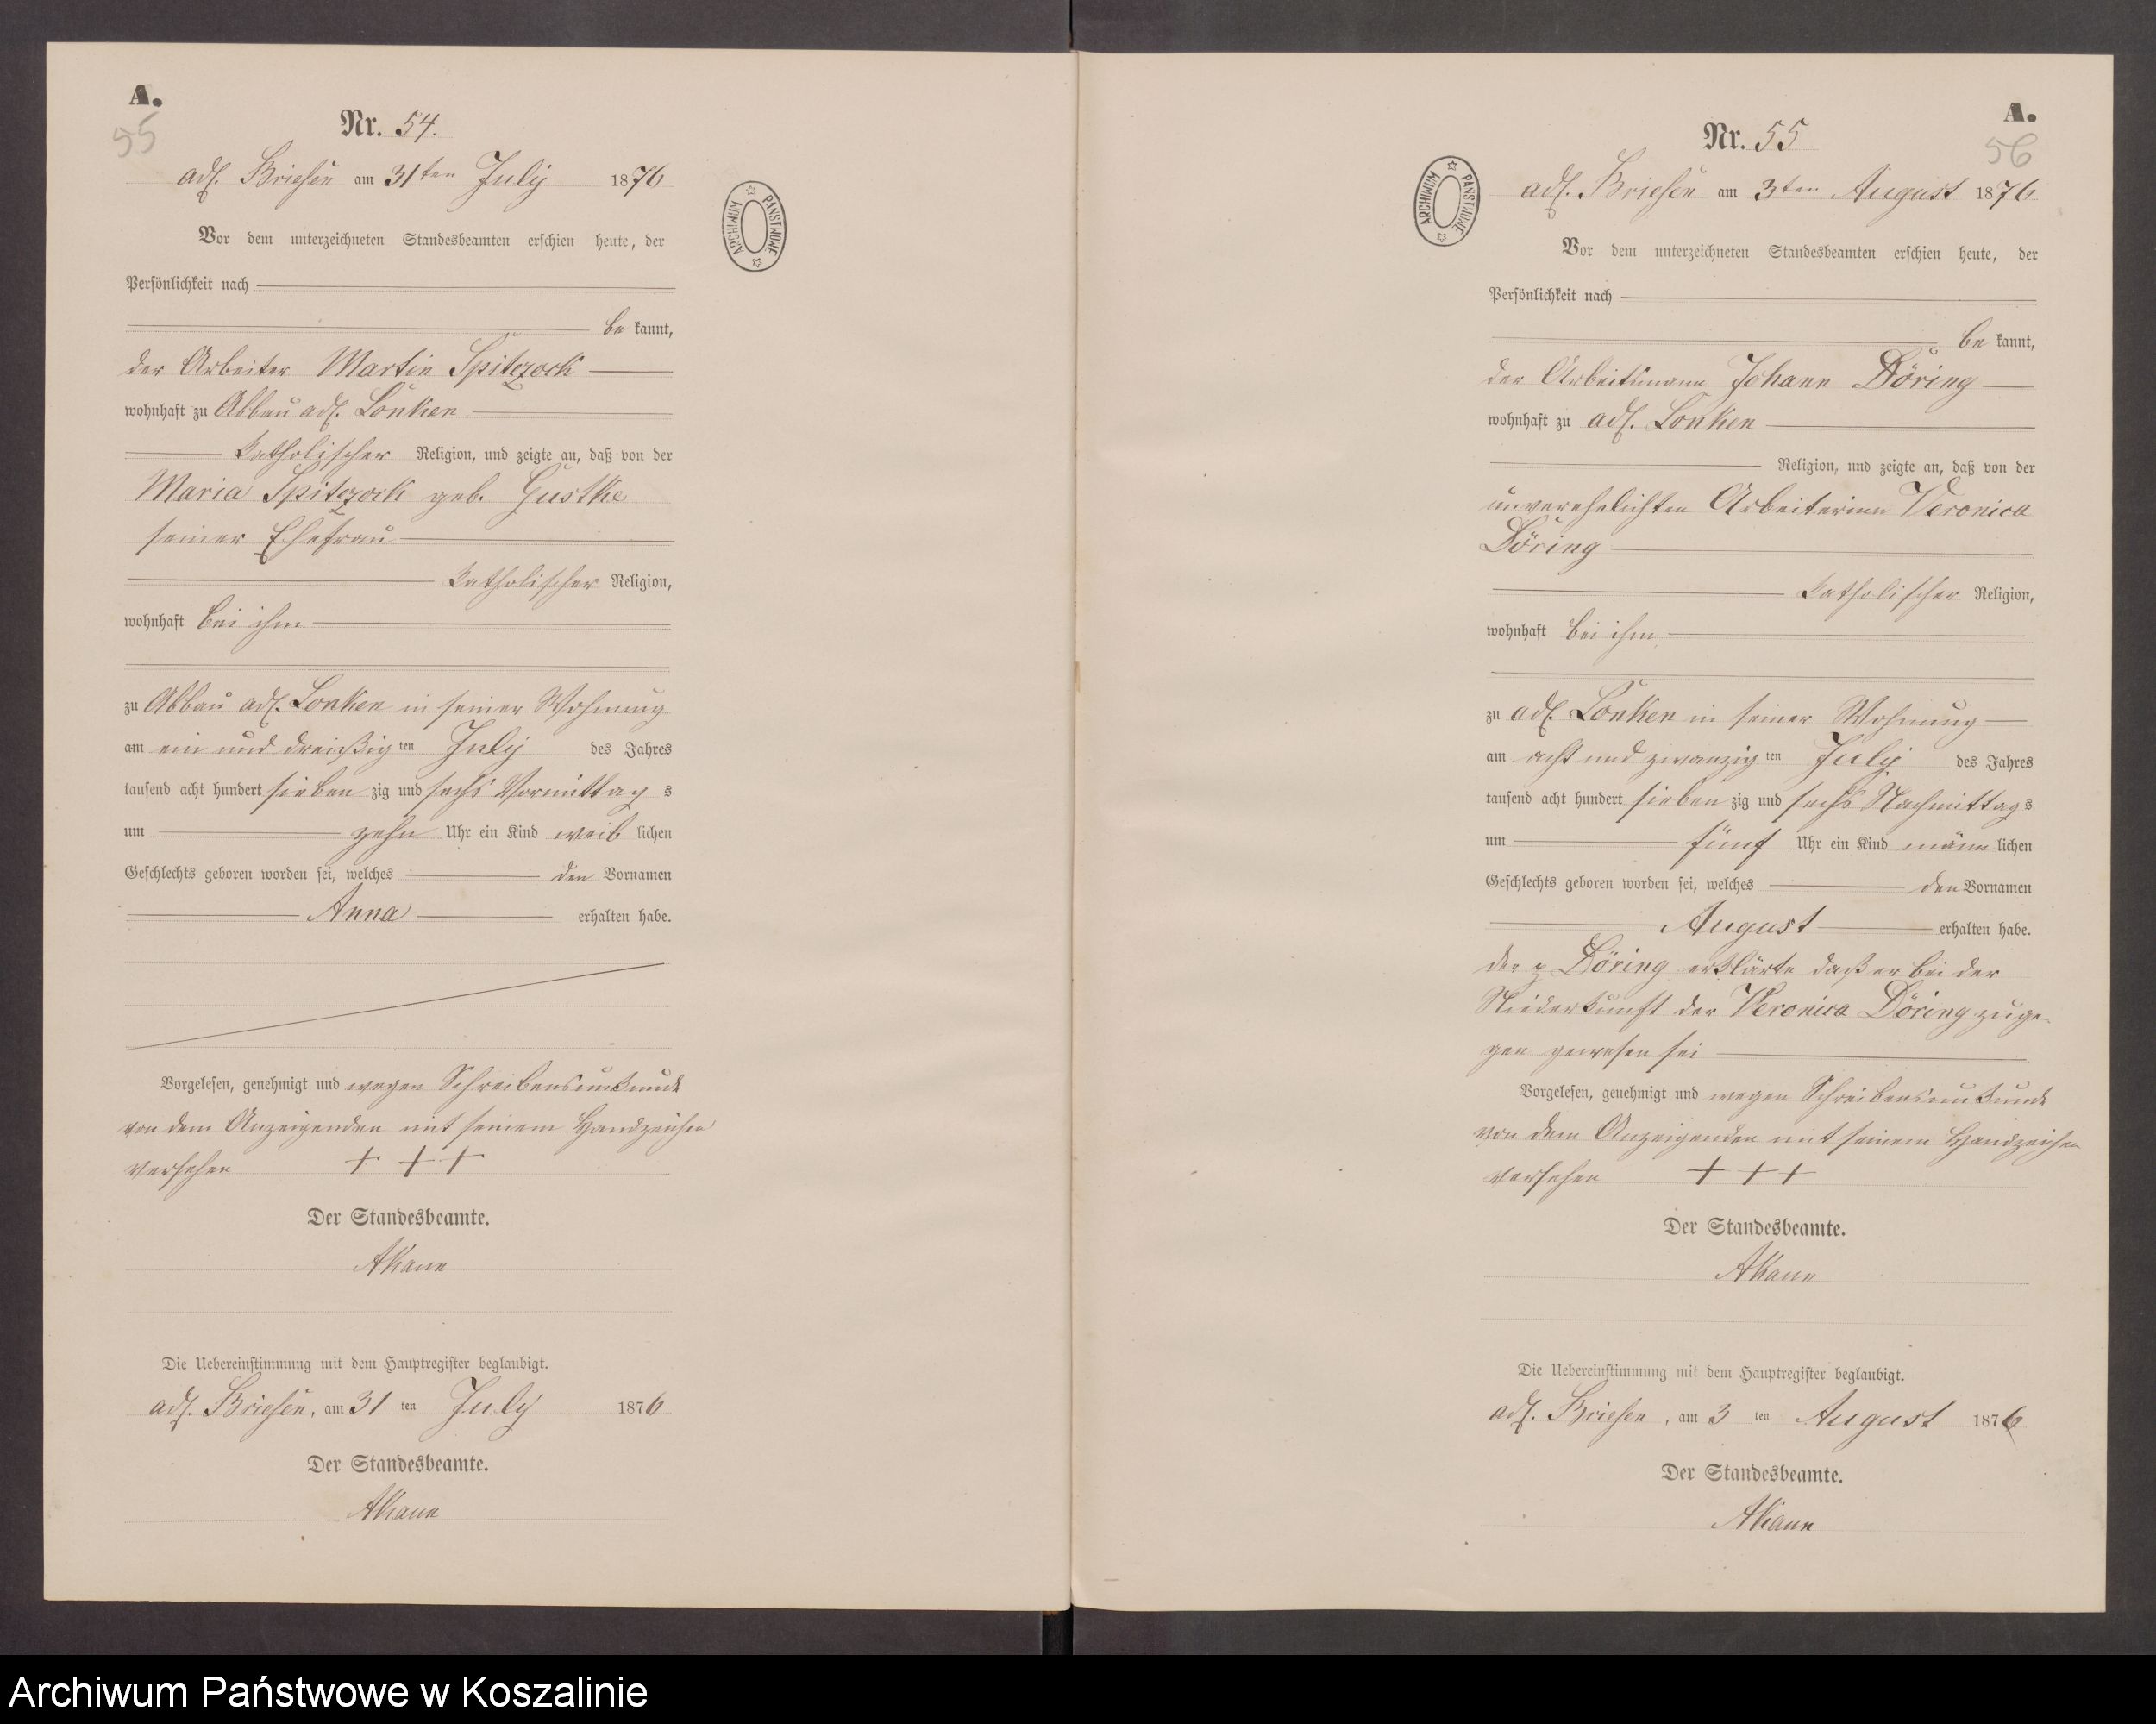 A.
55
Nr. 54.
adl. Briesen am 31ten July 1876
Vor dem unterzeichneten Standesbeamten erschien heute, der
Persönlichkeit nach
be kannt,
der Arbeiter Martin Spitczock
wohnhaft zu Abbau adl. Lonken
katholischer Religion, und zeigte an, daß von der
Maria Spitczock geb. Gustke
seiner Ehefrau
katholischer Religion,
wohnhaft bei ihm
zu Abbau adl. Lonken in seiner Wohnung
am ein und dreißig ten July des Jahres
tausend acht hundert sieben zig und sechs Vormittag s
um zehn Uhr ein Kind weib lichen
Geschlechts geboren worden sei, welches den Vornamen
Anna erhalten habe.
Vorgelesen, genehmigt und wegen Schreibensunkunde
von dem Anzeigenden mit seinem Handzeichen
versehen + + +
Der Standesbeamte.
AKaun
Die Uebereinstimmung mit dem Hauptregister beglaubigt.
adl. Briesen, am 31 ten July 1876
Der Standesbeamte.
AKaun
ARCHIWUM PAŃSTWOWE
A.
56
Nr. 55
adl. Briesen am 3ten August 1876
Vor dem unterzeichneten Standesbeamten erschien heute, der
Persönlichkeit nach
be kannt,
der Arbeitsmann Johann Döring
wohnhaft zu adl. Lonken
Religion, und zeigte an, daß von der
unverehelichten Arbeiterinn Veronica
Döring
katholischer Religion,
wohnhaft bei ihm
zu adl. Lonken in seiner Wohnung
am acht und zwanzig ten July des Jahres
tausend acht hundert sieben zig und sechs Nachmittag s
um fünf Uhr ein Kind männ lichen
Geschlechts geboren worden sei, welches den Vornamen
August erhalten habe.
der Döring erklärte daß er bei der
Niederkunft der Veronica Döring zuge-
gen gewesen sei
Vorgelesen, genehmigt und wegen Schreibensunkunde
von dem Anzeigenden mit seinem Handzeichen
versehen + + +
Der Standesbeamte.
AKaun
Die Uebereinstimmung mit dem Hauptregister beglaubigt.
adl. Briesen, am 3 ten August 1876
Der Standesbeamte.
AKaun
ARCHIWUM PAŃSTWOWE
Archiwum Państwowe w Koszalinie